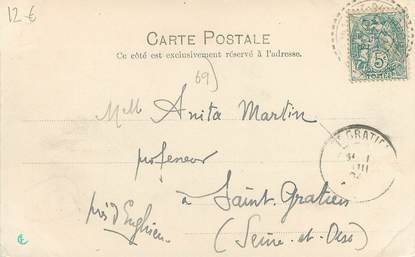 12 €
CARTE POSTALE
Ce côté est exclusivement réservé à l'adresse.
69)
Mlle Anita Martin
professeur
à Saint-Gratien
près d'Enghien
(Seine-et-Oise)
5c
GRATIEN